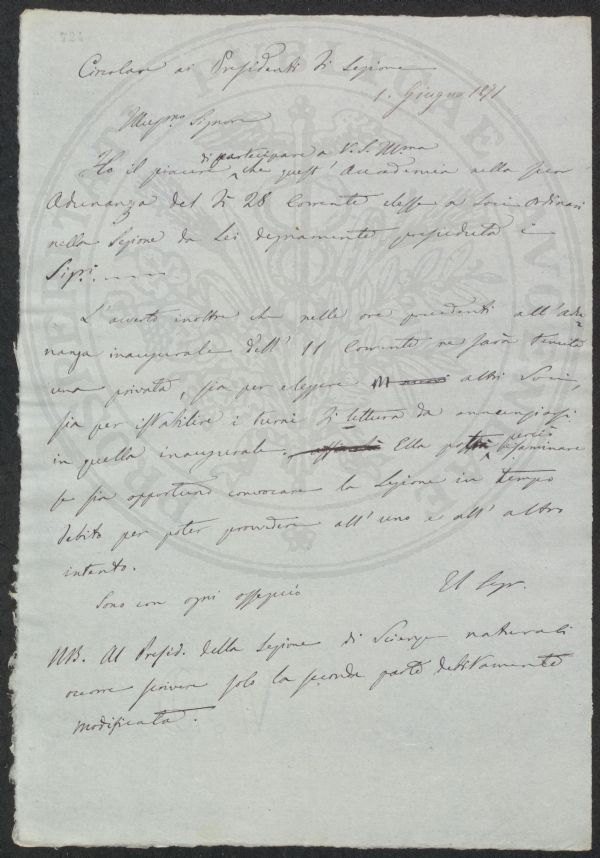 Circolare ai Presidenti di Sezione
1. Giugno 1871
Illusmo. Signore
di partecipare a V. S. Illma
Ho il piacere che quest' Accademia nella sua
Adunanza del dì 28 Corrente elesse a Soci ordinari
nella Sezione da Lei degnamente presieduta i
Sigri. -----
L'avverto inoltre che nelle ore precedenti all'adu=
nanza inaugurale dell' 11 Corrente ne sarà tenuta
una privata, sia per eleggere altri Soci,
sia per istabilire i turni di lettura da annunziarsi
in quella inaugurale. Ella potrà perciò esaminare
se sia opportuno convocare la Sezione in tempo
debito per poter provvedere all' uno e all' altro
intento.
Sono con ogni ossequio
Il Segr.
NB. Al Presid. della Sezione di Scienze naturali
occorre scrivere solo la seconda parte debitamente
modificata.